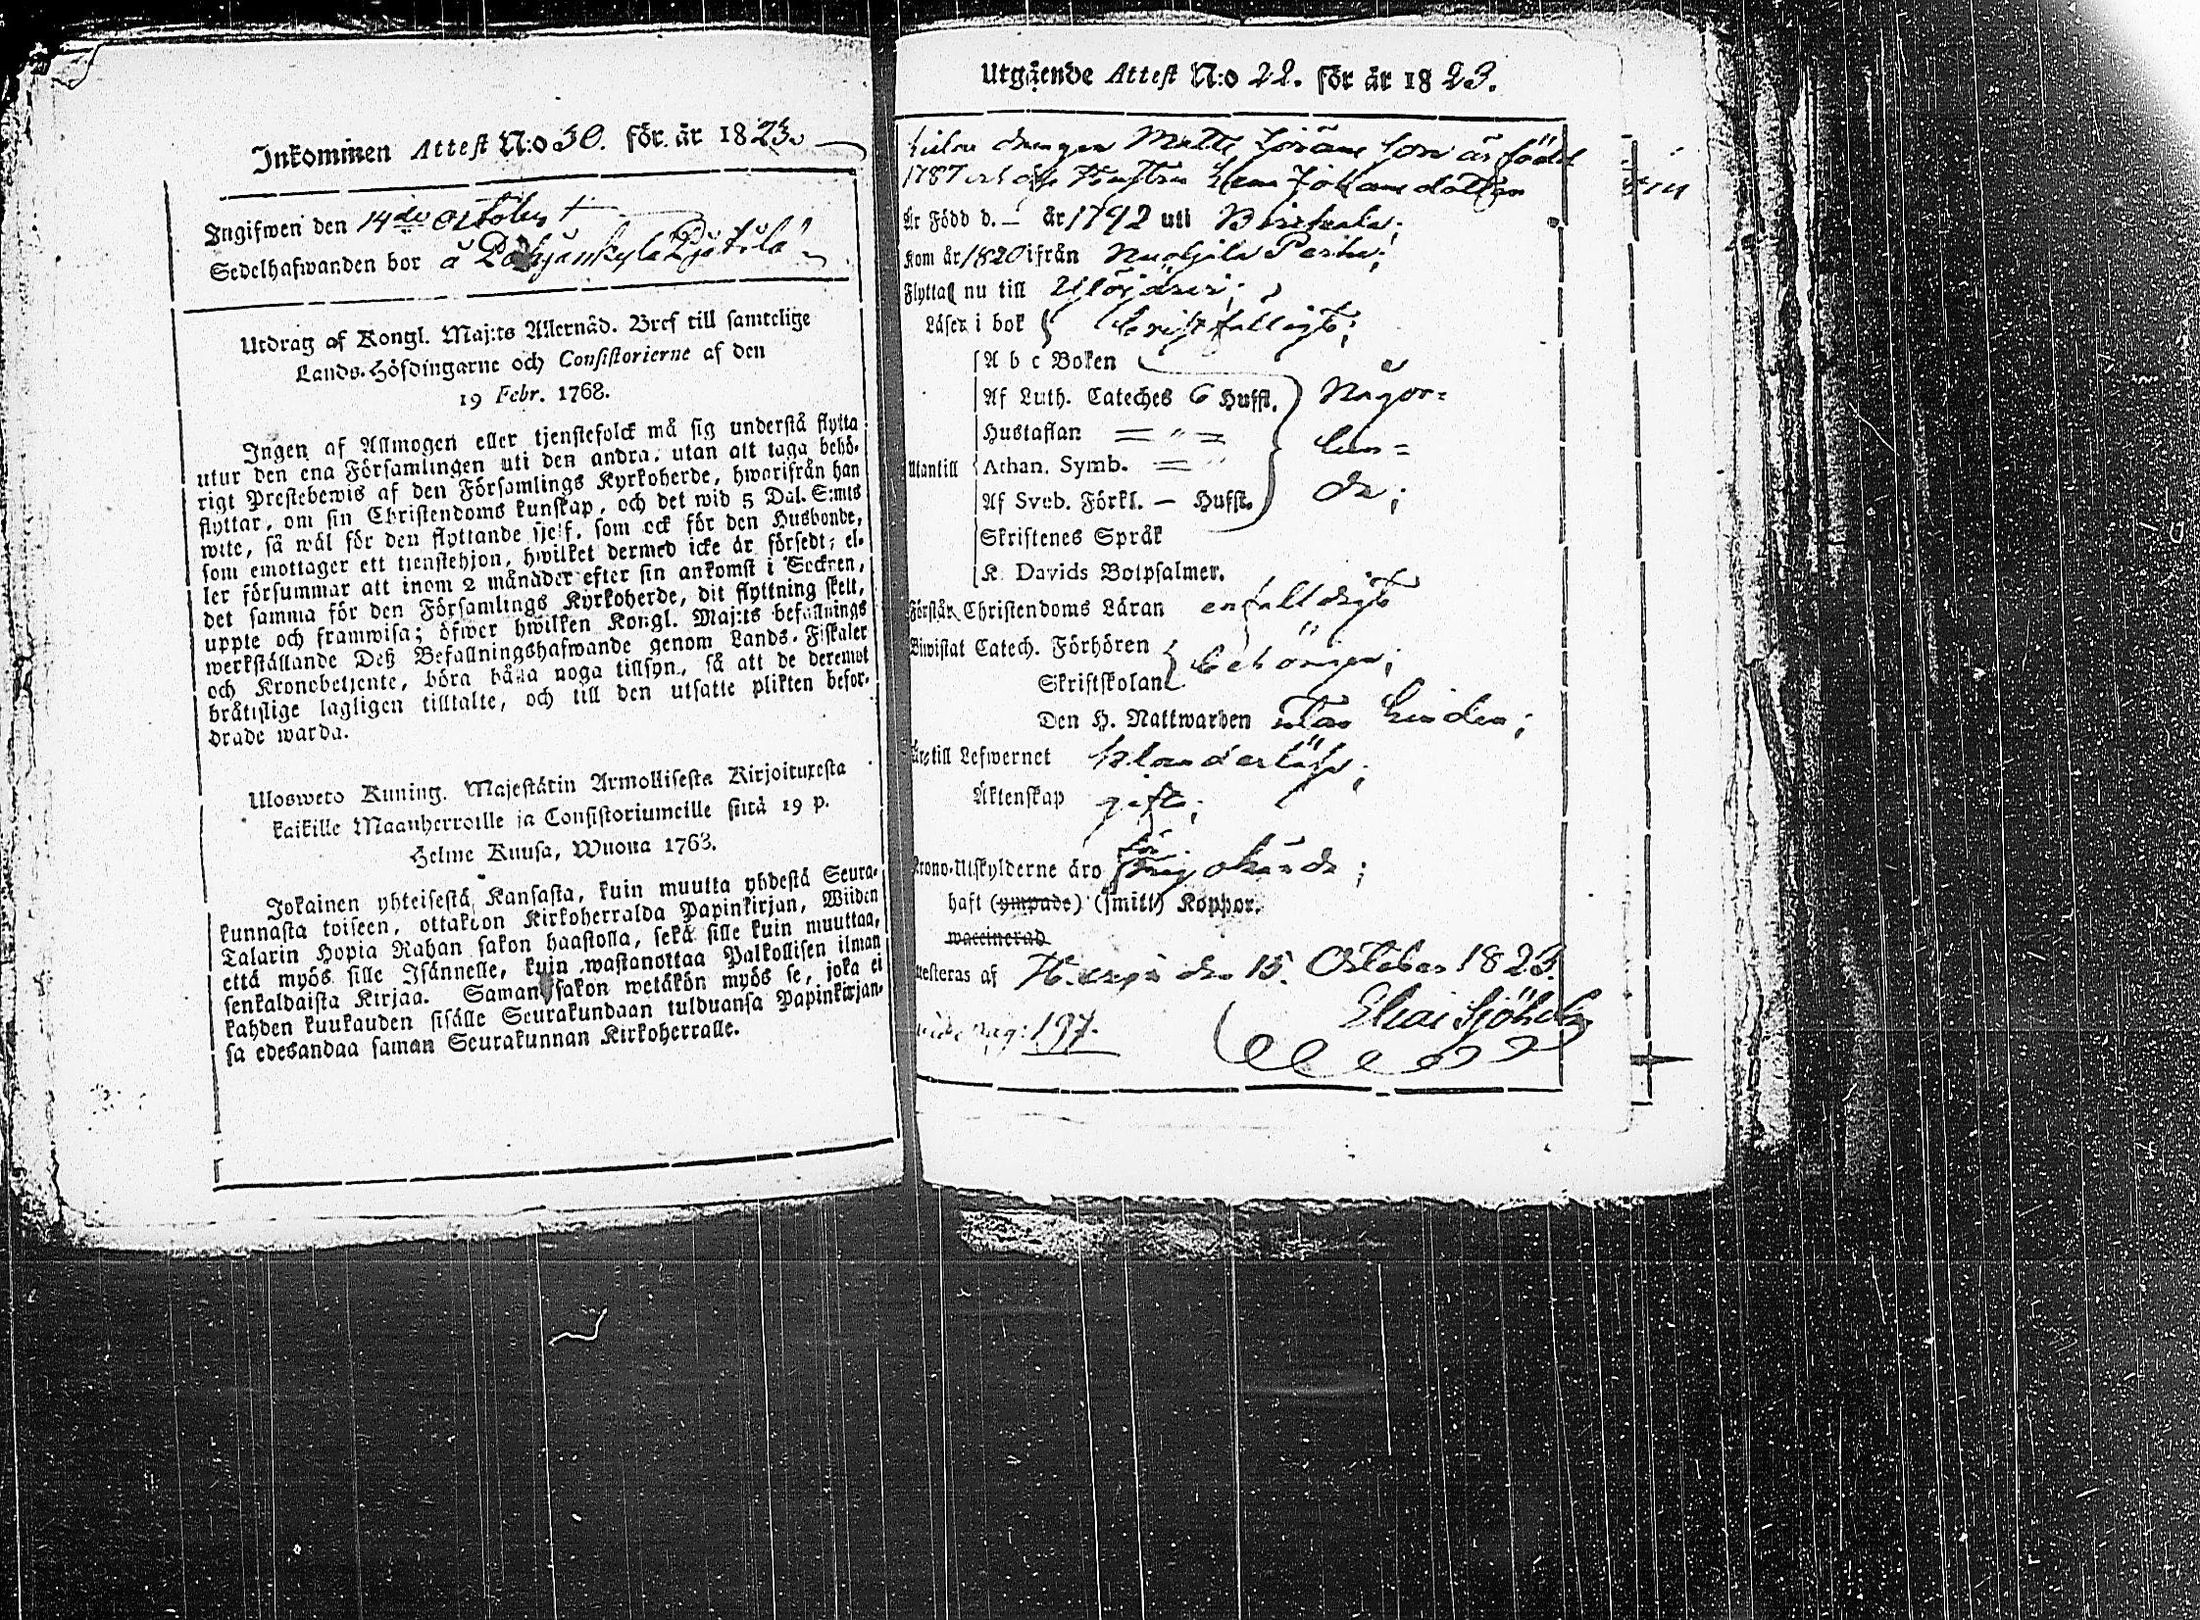 Inkommen Attest N:o 30. för år 1823.
Ingifwen den 14de October
Sedelhafwanden bor å Pohjankylä
Utdrag af Kongl. Maj:ts Allernåd. Bref till samtelige
Lands-Höfdingarne och Consistorierne af den
19 Febr. 1768.
Ingen af Allmogen eller tjenstefolck må sig understå flytta
utur den ena Församlingen uti den andra, utan att taga behö-
rigt Prestebewis af den Församlings Kyrkoherde, hwarifrån han
flyttar, om sin Christendoms kunskap, och det wid 5 Dal. S:mts
wite, så wäl för den flyttande sjelf, som ock för den Husbonde,
som emottager ett tienstehjon, hwilket dermed icke är försedt; el-
ler försummar att inom 2 månader efter sin ankomst i Socknen,
det samma för den Församlings Kyrkoherde, dit flyttning skett,
uppte och framwisa; öfwer hwilken Kongl. Maj:ts befallnings
werkställande Deß Befallningshafwande genom Lands-Fiskaler
och Kronobetjente, böra hålla noga tillsyn, så att de deremot
bråtislige lagligen tilltalte, och till den utsatte plikten befor-
drade warda.
Ulosweto Kuning. Majestätin Armollisesta Kirjoituxesta
kaikille Maanherroille ja Consistoriumeille siitä 19 p.
Helme Kuusa, Wuona 1763.
Jokainen yhteisestä Kansasta, kuin muutta yhdestä Seura-
kunnasta toiseen, ottakoon Kirkoherralda Papinkirjan, Wiiden
Talarin Hopia Rahan sakon haastolla, sekä sille kuin muuttaa,
että myös sille Isännelle, kuin wastanottaa Palkollisen ilman
senkaldaista Kirjaa. Saman sakon wetäkön myös se, joka ei
kahden kuukauden sisälle Seurakundaan tulduansa Papinkirjan-
sa edesandaa saman Seurakunnan Kirkoherralle.
Utgående Attest N:o 22. för år 1823.
drengen Matts som är född
1787 Johans dotter
Är Född d. – år 1792 uti Birkala;
Kom år 1820 ifrån
Flyttas nu till Ylöjärvi;
Läser i bok
A b c Boken
Af Luth. Cateches 6 Hufst. Någor=
Hustaflan lun=
Utantill Athan. Symb.
Af Sveb. Förkl. — Hufst. da;
Skriftenes Språk
K. Davids Botpsalmer.
Förstår Christendoms Läran enfalldigt
Biwistat Catech. Förhören
Skriftskolan behörigen;
Den H. Nattwarden utan hinder;
Är till Lefwernet klanderlös;
Äktenskap gift;
Krono-Utskylderne äro
haft (ympade) (smitt) Koppor.
waccinerad
Attesteras af den 15 October 1823.
Elias Sjöholm
Vide Pag: 197.